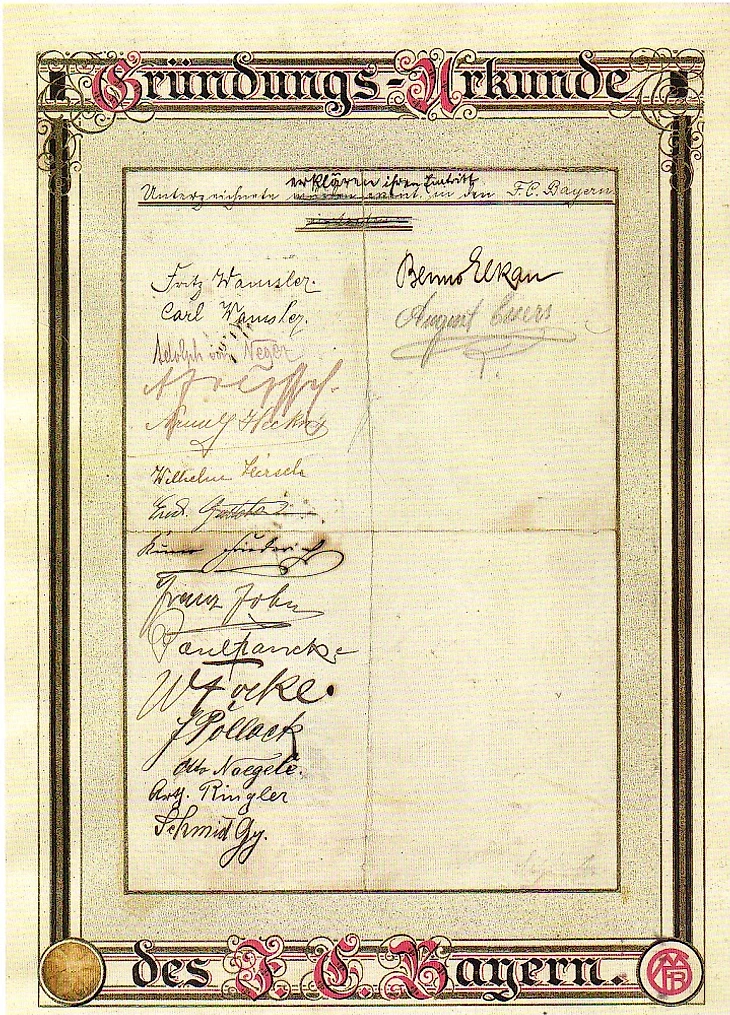 Gründungs-Urkunde
erklären ihren Eintritt
Unterzeichnete in den F.C. Bayern
Fritz Wamsler.
Carl Wamsler.
Adolph von Neger
Wilhelm Hirsch
Franz John
Paul Francke
W Focke.
J Pollack
Otto Naegele.
Arth. Ringler
Schmid Gg.
Benno Elkan
August
des F. C. Bayern.